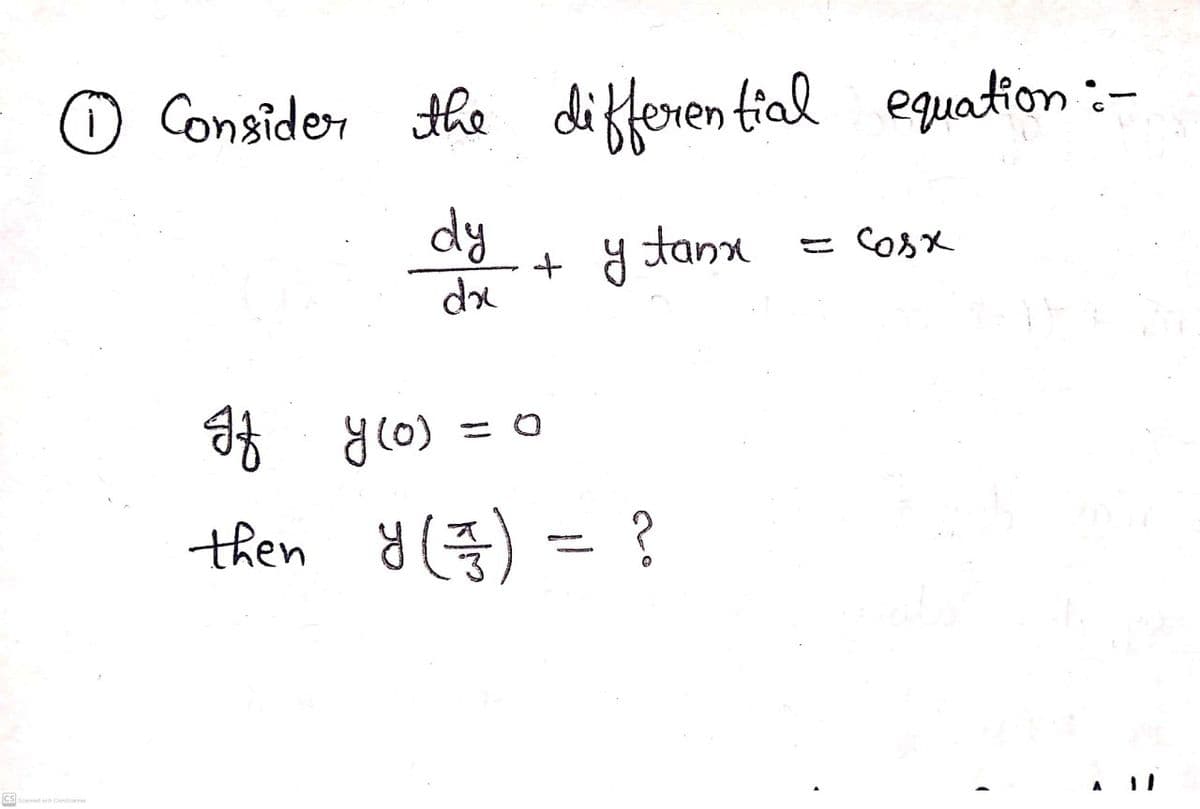 ① Consider the differential equation :-
dy/dx + y tanx = cosx
If y(0) = 0
then y(π/3) = ?
CS Scanned with CamScanner